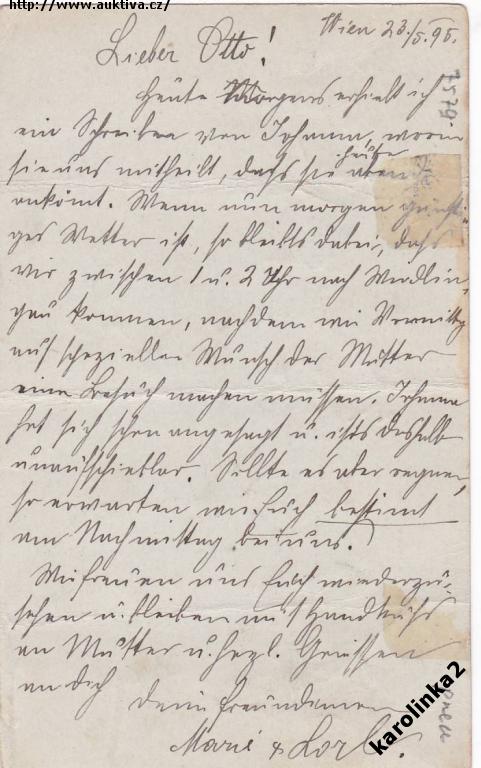 http://www.auktiva.cz/
Wien 23./5. 95.
Lieber Otto!
Heute Morgens erhielt ich
ein Schreiben von Johanna, worin
sie uns mittheilt, daß sie heute
ankom̄t. Wenn nun morgen günsti-
ges Wetter ist, so bleibts dabei, daß
wir zwischen 1 u. 2 Uhr nach
kommen, nachdem wir Vormittg
auf speziellen Wunsch der Mutter
einen Besuch machen müssen. Johanna
hat sich schon angesagt u. ists deshalb
unaufschiebbar. Sollte es aber regnen,
so erwarten wir Euch bestimt
am Nachmittag bei uns.
Wir freuen uns Euch wiederzu-
sehen u. bleiben mit Handkuß
an Mutter u. herzl. Grüssen
an dich
deine Freundinnen
Marie &
karolinka2